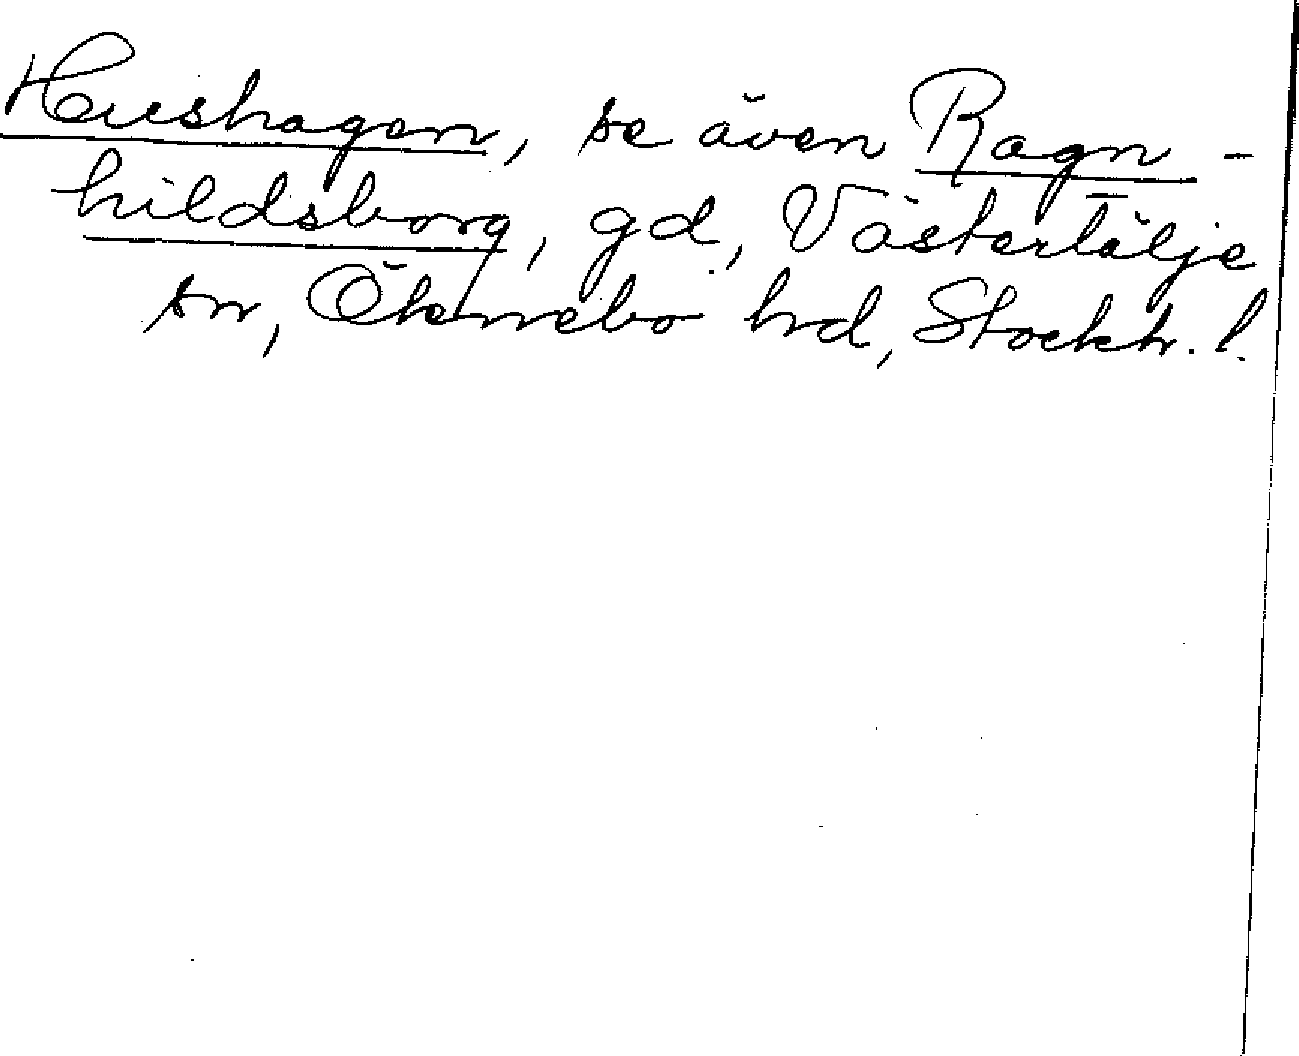 Hushagen, se även Ragn-
hildsborg, gd, Västertälje
sn, Öknebo hd, Stockh. l.